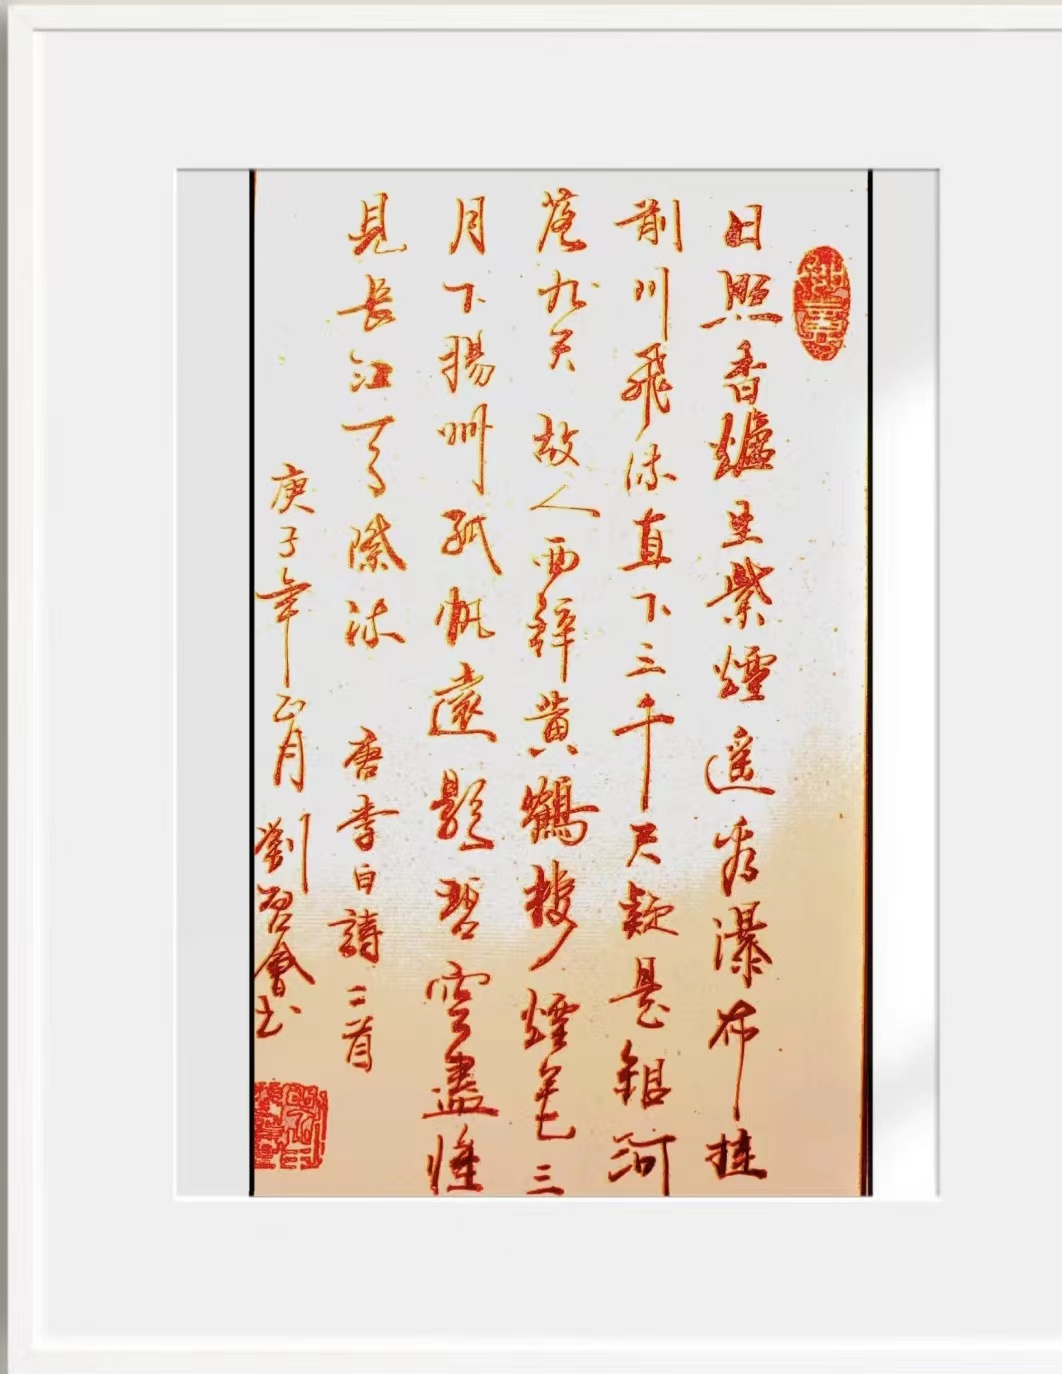 日照香爐生紫煙遥看瀑布挂
前川飛流直下三千尺疑是銀河
落九天 故人西辭黄鶴樓煙花三
月下揚州孤帆遠影碧空盡惟
見長江天際流 唐李白詩二首
庚子年正月 劉會书